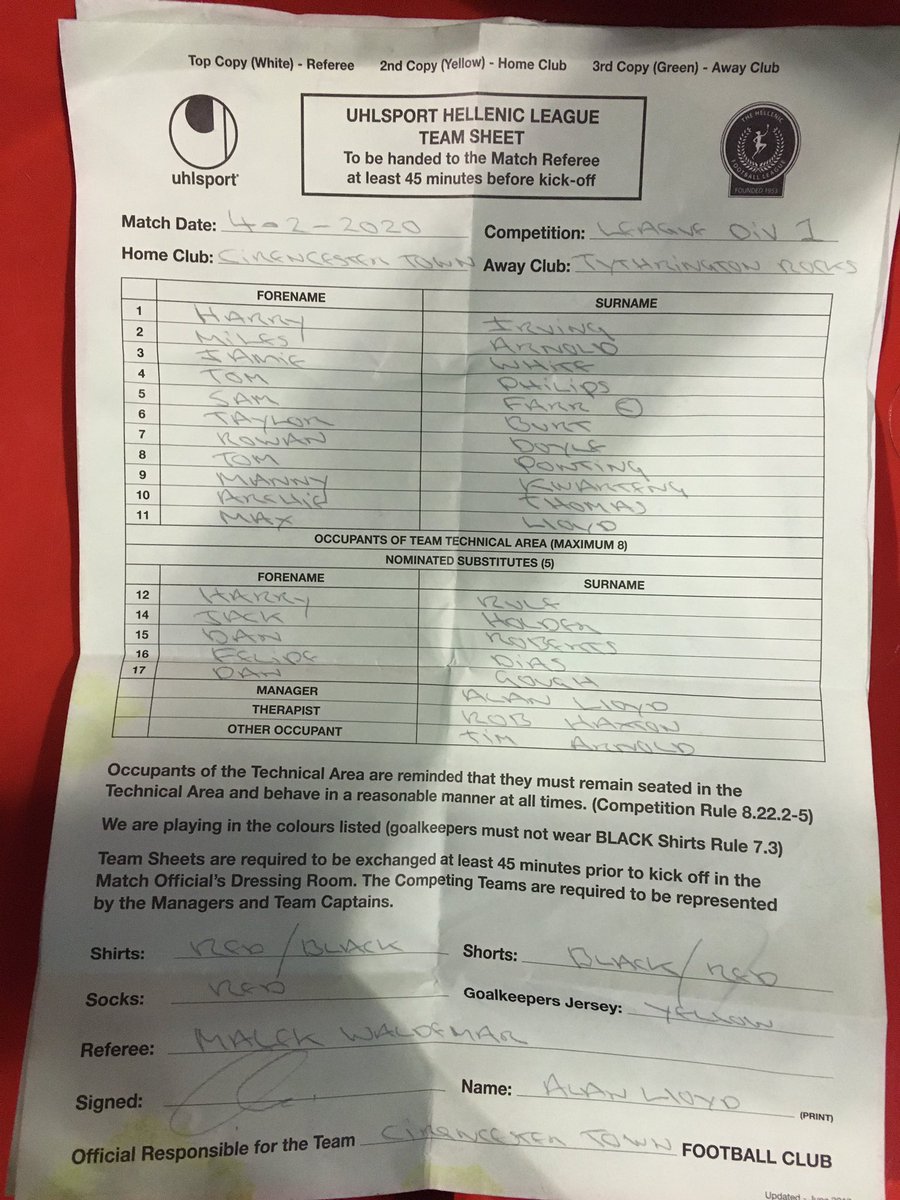 Top Copy (White) - Referee 2nd Copy (Yellow) - Home Club 3rd Copy (Green) - Away Club
uhlsport
UHLSPORT HELLENIC LEAGUE
TEAM SHEET
To be handed to the Match Referee
at least 45 minutes before kick-off
THE HELLENIC FOOTBALL LEAGUE
FOUNDED 1953
Match Date: 4-2-2020 Competition: LEAGUE DIV 1
Home Club: CIRENCESTER TOWN Away Club: TYTHRINGTON ROCKS
FORENAME SURNAME
1 HARRY IRVING
2 MILES ARNOLD
3 JAMIE WHITE
4 TOM PHILIPS
5 SAM FARR C
6 TAYLOR BURT
7 ROWAN DOYLE
8 TOM PONTING
9 MANNY KWARTENG
10 ARCHIE THOMAS
11 MAX LLOYD
OCCUPANTS OF TEAM TECHNICAL AREA (MAXIMUM 8)
NOMINATED SUBSTITUTES (5)
FORENAME SURNAME
12 HARRY RULE
14 JACK HOLDEN
15 DAN ROBERTS
16 FELIPE DIAS
17 DAN GOUGH
MANAGER ALAN LLOYD
THERAPIST ROB HAXTON
OTHER OCCUPANT TIM ARNOLD
Occupants of the Technical Area are reminded that they must remain seated in the
Technical Area and behave in a reasonable manner at all times. (Competition Rule 8.22.2-5)
We are playing in the colours listed (goalkeepers must not wear BLACK Shirts Rule 7.3)
Team Sheets are required to be exchanged at least 45 minutes prior to kick off in the
Match Official's Dressing Room. The Competing Teams are required to be represented
by the Managers and Team Captains.
Shirts: RED / BLACK Shorts: BLACK / RED
Socks: RED Goalkeepers Jersey: YELLOW
Referee: MALEK WALDEMAR
Signed: Name: ALAN LLOYD
(PRINT)
Official Responsible for the Team CIRENCESTER TOWN FOOTBALL CLUB
Updated - June